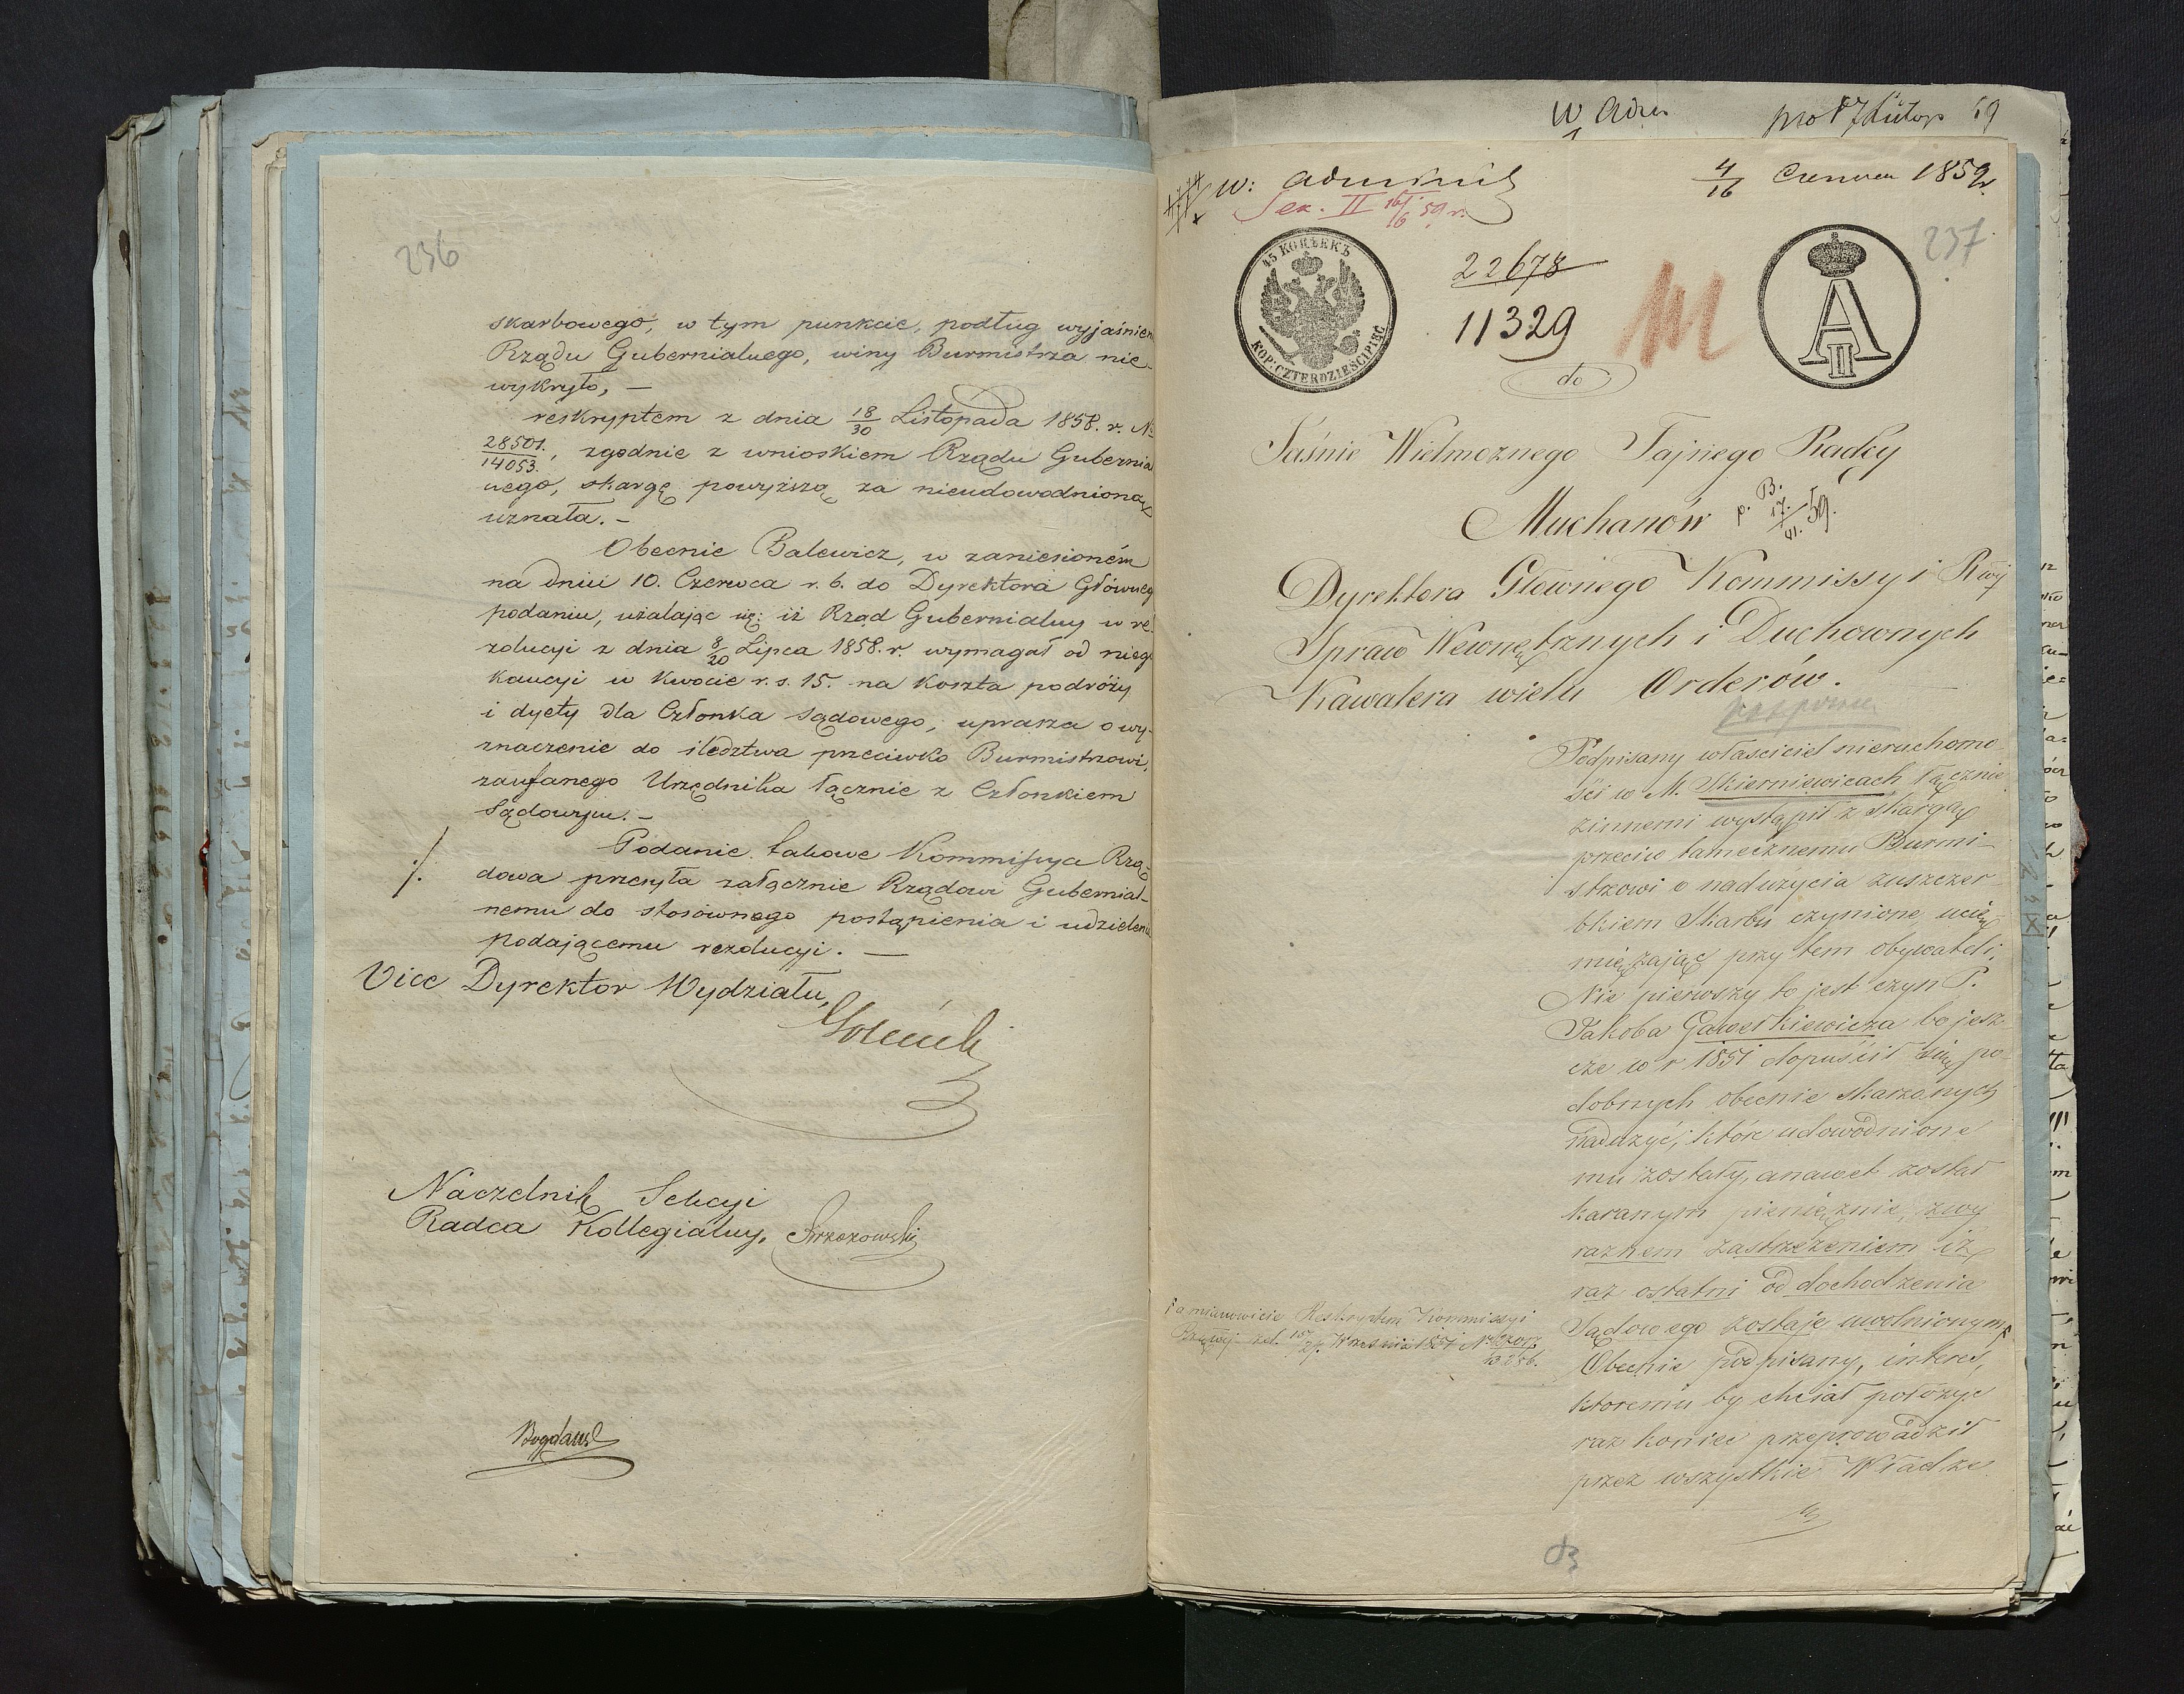 236
skarbowego, w tym punkcie, podług wyjaśnień
Rządu Gubernialnego, winy Burmistrza nie-
wykryto, —
reskryptem z dnia 18/30 Listopada 1858. r. No
28501./14053., zgodnie z wnioskiem Rządu Gubernial
nego, skargę powyższą za nieudowodnioną
uznała. —
Obecnie Balewicz, w zaniesioném
na dniu 10. Czerwca r. b. do Dyrektora Główneg
podaniu, użalając się: iż Rząd Gubernialny w re-
zolucyi z dnia 8/20 Lipca 1858. r. wymagał od nieg
kaucyi w kwocie r. s. 15. na koszta podróży
i dyety dla Członka sądowego, uprasza o wy-
znaczenie do śledztwa przeciwko Burmistrzowi,
zaufanego Urzędnika łącznie z Członkiem
Sądowym. —
./. Podanie takowe Kommissya Rzą-
dowa przesyła załącznie Rządowi Gubernial-
nemu do stosównego postąpienia i udzieleni
podającemu rezolucyi. —
Vice Dyrektor Wydziału,
Naczelnik Sekcyi
Radca Kollegialny,
W
59
w:
4/16 Czerwca 1859 r.
Sek. II 16/6 59 r.
237
45 КОПѢЕКЪ
KOP: CZTERDZIEŚCI PIĘĆ
22678
11329
A II
do
Jaśnie Wielmożnego Tajnego Radcy
Muchanów
p. B. 17./VI. 59.
Dyrektora Głównego Kommissyi Rząj
Spraw Wewnętrznych i Duchownych
Kawalera wielu Orderów.
Podpisany właściciel nieruchomo-
ści w M. Skierniewicach łącznie
zinnemi wystąpił z skargą
przeciw tamecznemu Burmi-
strzowi o nadużycia zuszczer-
bkiem Skarbu czynione, ucie-
miężając przy tem obywateli.
Nie pierwszy to jest czyn P.
Jakoba Gawełkiewicza bo jesz-
cze w r 1851 dopuścił się po-
dobnych obecnie skarżonych
nadużyć, które udowodnione
mu zostały, anawet został
karanym pieniężnie, zwy
raźnem zastrzeżeniem iż
raz ostatni od dochodzenia
Sądowego zostaje uwolnionym
a mianowicie Reskryptem Kommissyi
Września 1851 No
Obecnie podpisany, interes,
ktoremu by chciał położyć
raz koniec przeprowadził
przez wszystkie Władze